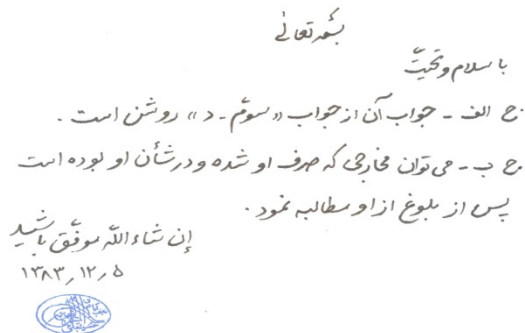 بسمه تعالی
با سلام و تحیّت
ج الف - جواب آن از جواب «سوّم - د» روشن است .
ج ب - می توان مخارجی که صرف او شده و در شأن او بوده است
پس از بلوغ از او مطالبه نمود .
إن شاء اللّه موفّق باشید
۱۳۸۳٫۱۲٫۵